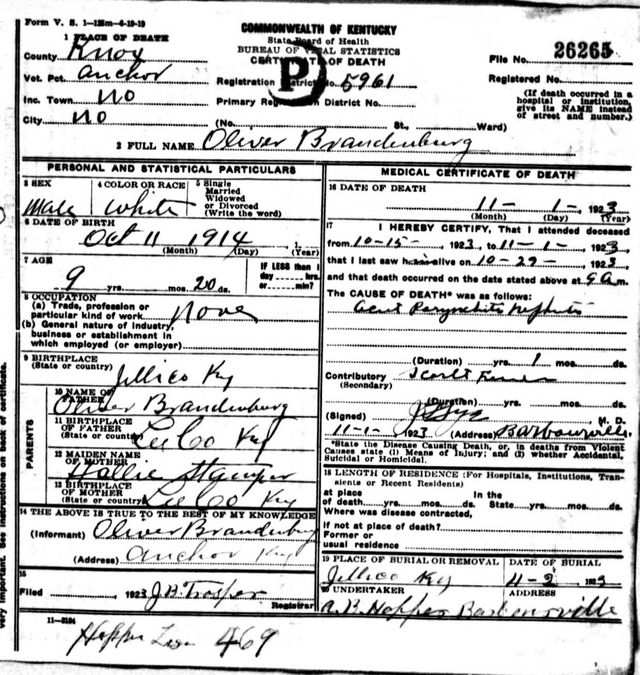 Form V. S. 1—125m—6-19-19
COMMONWEALTH OF KENTUCKY
State Board of Health
BUREAU OF VITAL STATISTICS
CERTIFICATE OF DEATH
1 PLACE OF DEATH
County Knox
Vot. Pct. Anchor
Inc. Town no
City no
P
Registration District No. 5961
Primary Registration District No.
(No. St., Ward)
File No. 26265
Registered No.
(If death occurred in a
hospital or institution,
give its NAME instead
of street and number.)
2 FULL NAME Oliver Brandenburg
PERSONAL AND STATISTICAL PARTICULARS
3 SEX
Male
4 COLOR OR RACE
White
5 Single
Married
Widowed
or Divorced
(Write the word)
6 DATE OF BIRTH
Oct 11 1914
(Month) (Day) (Year)
7 AGE
9 yrs. mos. 20 ds.
IF LESS than 1
day hrs.
or min?
8 OCCUPATION
(a) Trade, profession or
particular kind of work None
(b) General nature of industry,
business or establishment in
which employed (or employer)
9 BIRTHPLACE
(State or country) Jellico Ky
PARENTS
10 NAME OF
FATHER
Oliver Brandenburg
11 BIRTHPLACE
OF FATHER
(State or country) Lee Co Ky
12 MAIDEN NAME
OF MOTHER
Hallie Stamper
13 BIRTHPLACE
OF MOTHER
(State or country) Lee Co Ky
14 THE ABOVE IS TRUE TO THE BEST OF MY KNOWLEDGE
(Informant) Oliver Brandenburg
(Address) Anchor Ky
15
Filed 1923 J.B. Trosper
Registrar
11—3184
469
MEDICAL CERTIFICATE OF DEATH
16 DATE OF DEATH
11- 1-, 1923
(Month) (Day) (Year)
17 I HEREBY CERTIFY, That I attended deceased
from 10-15-, 1923, to 11-1-, 1923,
that I last saw him alive on 10-29-, 1923,
and that death occurred on the date stated above at 9 a m.
The CAUSE OF DEATH* was as follows:
(Duration) yrs. 1 mos. ds.
Contributory
(Secondary)
(Duration) yrs. mos. ds.
(Signed) M. D.
11-1-, 1923 (Address) Barbourville
*State the Disease Causing Death, or, in deaths from Violent
Causes state (1) Means of Injury; and (2) whether Accidental,
Suicidal or Homicidal.
18 LENGTH OF RESIDENCE (For Hospitals, Institutions, Tran-
sients or Recent Residents)
at place In the
of death yrs. mos. ds. State yrs. mos. ds.
Where was disease contracted,
if not at place of death?
Former or
usual residence
19 PLACE OF BURIAL OR REMOVAL
Jellico Ky
DATE OF BURIAL
1923
20 UNDERTAKER
A.B. Hopper
ADDRESS
Barbourville
very important. See instructions on back of certificate.